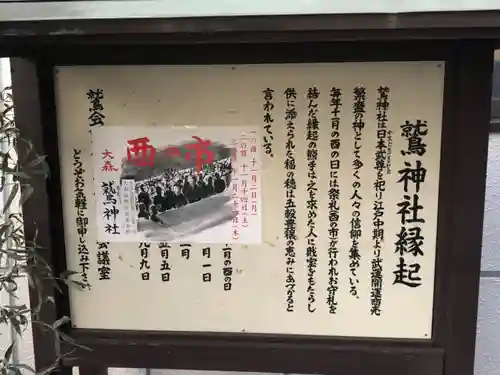 鷲神社縁起
鷲神社は日本武尊を祀り江戸中期より武運開運商売
繁盛の神として多くの人々の信仰を集めている。
毎年十一月の酉の日には祭礼(酉の市)が行われお守札を
結んだ縁起の熊手は之を求めた人に戝宝をもたらし
供に添えられた稲の穂は五穀豊穣の恵みにあづかると
言われている。
酉の市
一の酉 十一月二日(月)
二の酉 十一月十四日(土)
大森
鷲神社
一月の酉の日
一月一日
五月五日
九月九日
会議室
どうぞお気軽に御申し込み下さい